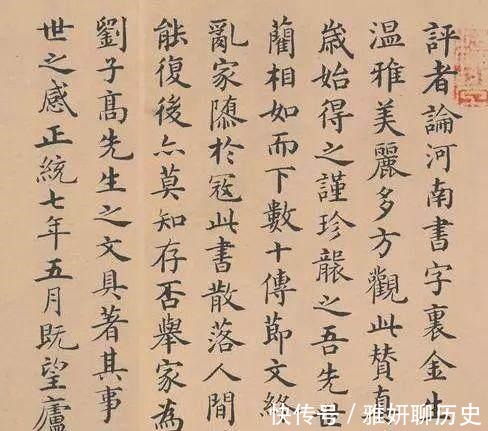 評者論河南書字裏金生
温雅美麗多方觀此賛
歳始得之謹珍襲之吾先
藺相如而下數十傳節文
亂家於冦此書散落人間
能復後亦莫知存否舉家為
劉子髙先生之文具著其事
世之感正統七年五月既望廬
快传号 / 雅妍聊历史